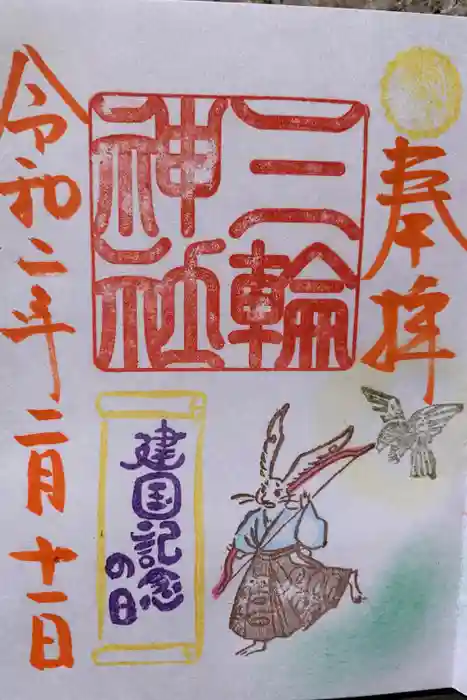 奉拝
三輪
神社
建国記念
の日
令和二年二月十一日